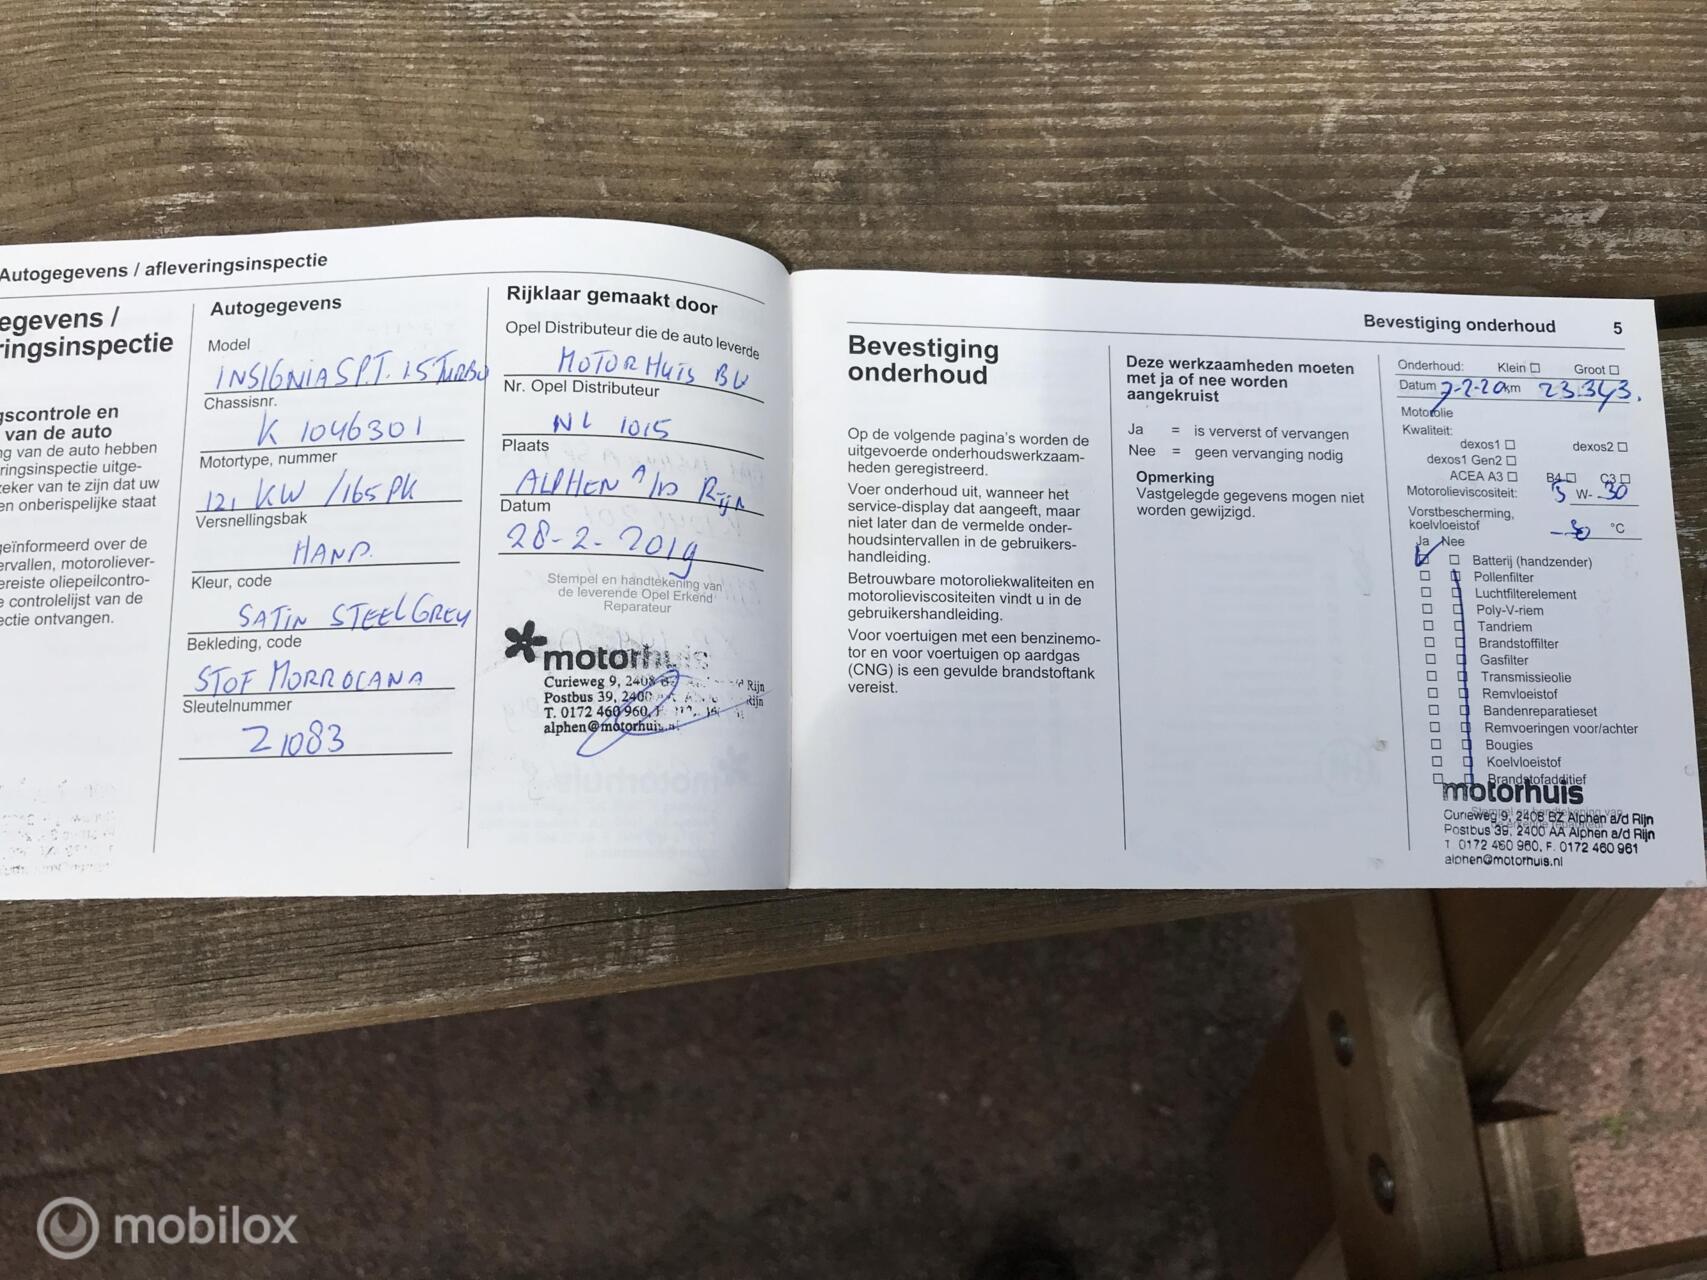 Autogegevens / afleveringsinspectie
egevens /
ringsinspectie
gscontrole en
van de auto
ng van de auto hebben
eringsinspectie uitge-
eker van te zijn dat uw
en onberispelijke staat
geïnformeerd over de
ervallen, motoroliever-
ereiste oliepeilcontro-
e controlelijst van de
ectie ontvangen.
Autogegevens
Model
INSIGNIA SP.T. 1.5 TURBO
Chassisnr.
K 1046301
Motortype, nummer
121 KW / 165 PK
Versnellingsbak
HAND.
Kleur, code
SATIN STEEL GREY
Bekleding, code
STOF MORROCANA
Sleutelnummer
Z1083
Rijklaar gemaakt door
Opel Distributeur die de auto leverde
MOTORHUIS BV
Nr. Opel Distributeur
NL 1015
Plaats
ALPHEN A/D RIJN
Datum
28-2-2019
Stempel en handtekening van
de leverende Opel Erkend
Reparateur
motorhuis
Curieweg 9, 2408 Rijn
Postbus 39, 2400 Rijn
T. 0172 460 960, F.
alphen@motorhuis.nl
Bevestiging onderhoud 5
Bevestiging
onderhoud
Op de volgende pagina's worden de
uitgevoerde onderhoudswerkzaam-
heden geregistreerd.
Voer onderhoud uit, wanneer het
service-display dat aangeeft, maar
niet later dan de vermelde onder-
houdsintervallen in de gebruikers-
handleiding.
Betrouwbare motoroliekwaliteiten en
motorolieviscositeiten vindt u in de
gebruikershandleiding.
Voor voertuigen met een benzinemo-
tor en voor voertuigen op aardgas
(CNG) is een gevulde brandstoftank
vereist.
Deze werkzaamheden moeten
met ja of nee worden
aangekruist
Ja = is ververst of vervangen
Nee = geen vervanging nodig
Opmerking
Vastgelegde gegevens mogen niet
worden gewijzigd.
Onderhoud: Klein Groot
Datum 7-2-20 km 23.343.
Motorolie
Kwaliteit:
dexos1 dexos2
dexos1 Gen2
ACEA A3 B4 C3
Motorolieviscositeit: 5 W- 30
Vorstbescherming,
koelvloeistof -30 °C
Ja Nee
Batterij (handzender)
Pollenfilter
Luchtfilterelement
Poly-V-riem
Tandriem
Brandstoffilter
Gasfilter
Transmissieolie
Remvloeistof
Bandenreparatieset
Remvoeringen voor/achter
Bougies
Koelvloeistof
Brandstofadditief
motorhuis
Curieweg 9, 2408 BZ Alphen a/d Rijn
Postbus 39, 2400 AA Alphen a/d Rijn
T 0172 460 960, F. 0172 460 961
alphen@motorhuis.nl
mobilox